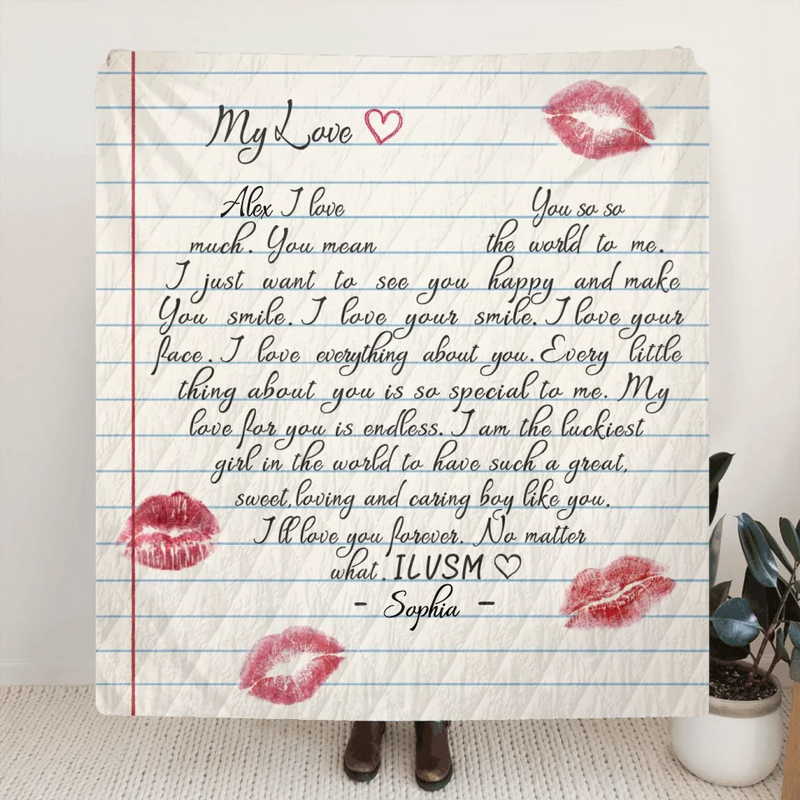 My Love ♡
Alex I love You so so
much. You mean the world to me.
I just want to see you happy and make
You smile. I love your smile. I love your
face. I love everything about you. Every little
thing about you is so special to me. My
love for you is endless. I am the luckiest
girl in the world to have such a great,
sweet, loving and caring boy like you.
I ll love you forever. No matter
what. ILVSM ♡
- Sophia -